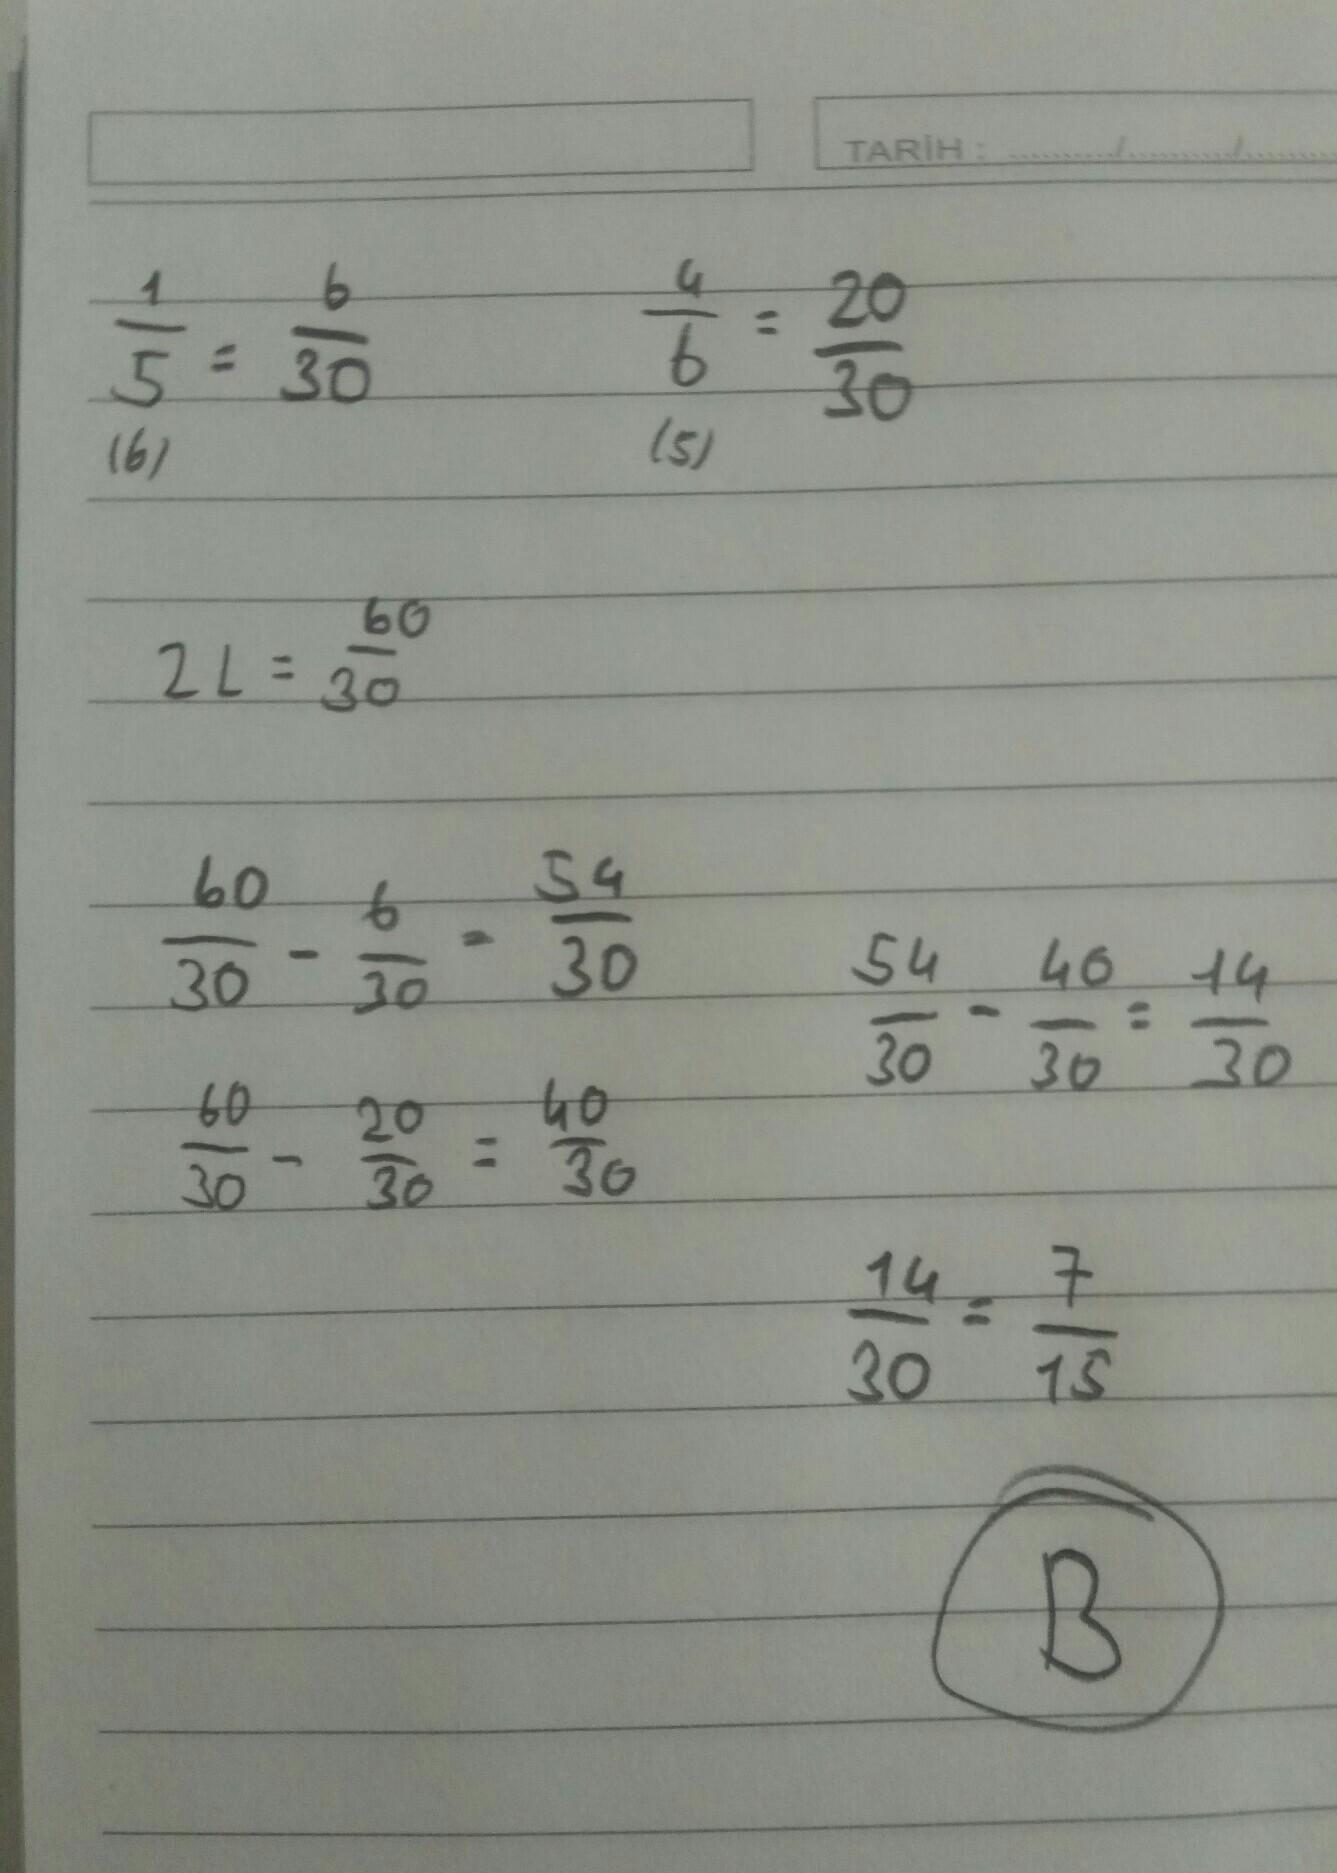 TARİH : ......../......../........
1/5 = 6/30    4/6 = 20/30
(6)    (5)
2L = 60/30
60/30 - 6/30 = 54/30
54/30 - 40/30 = 14/30
60/30 - 20/30 = 40/30
14/30 = 7/15
B